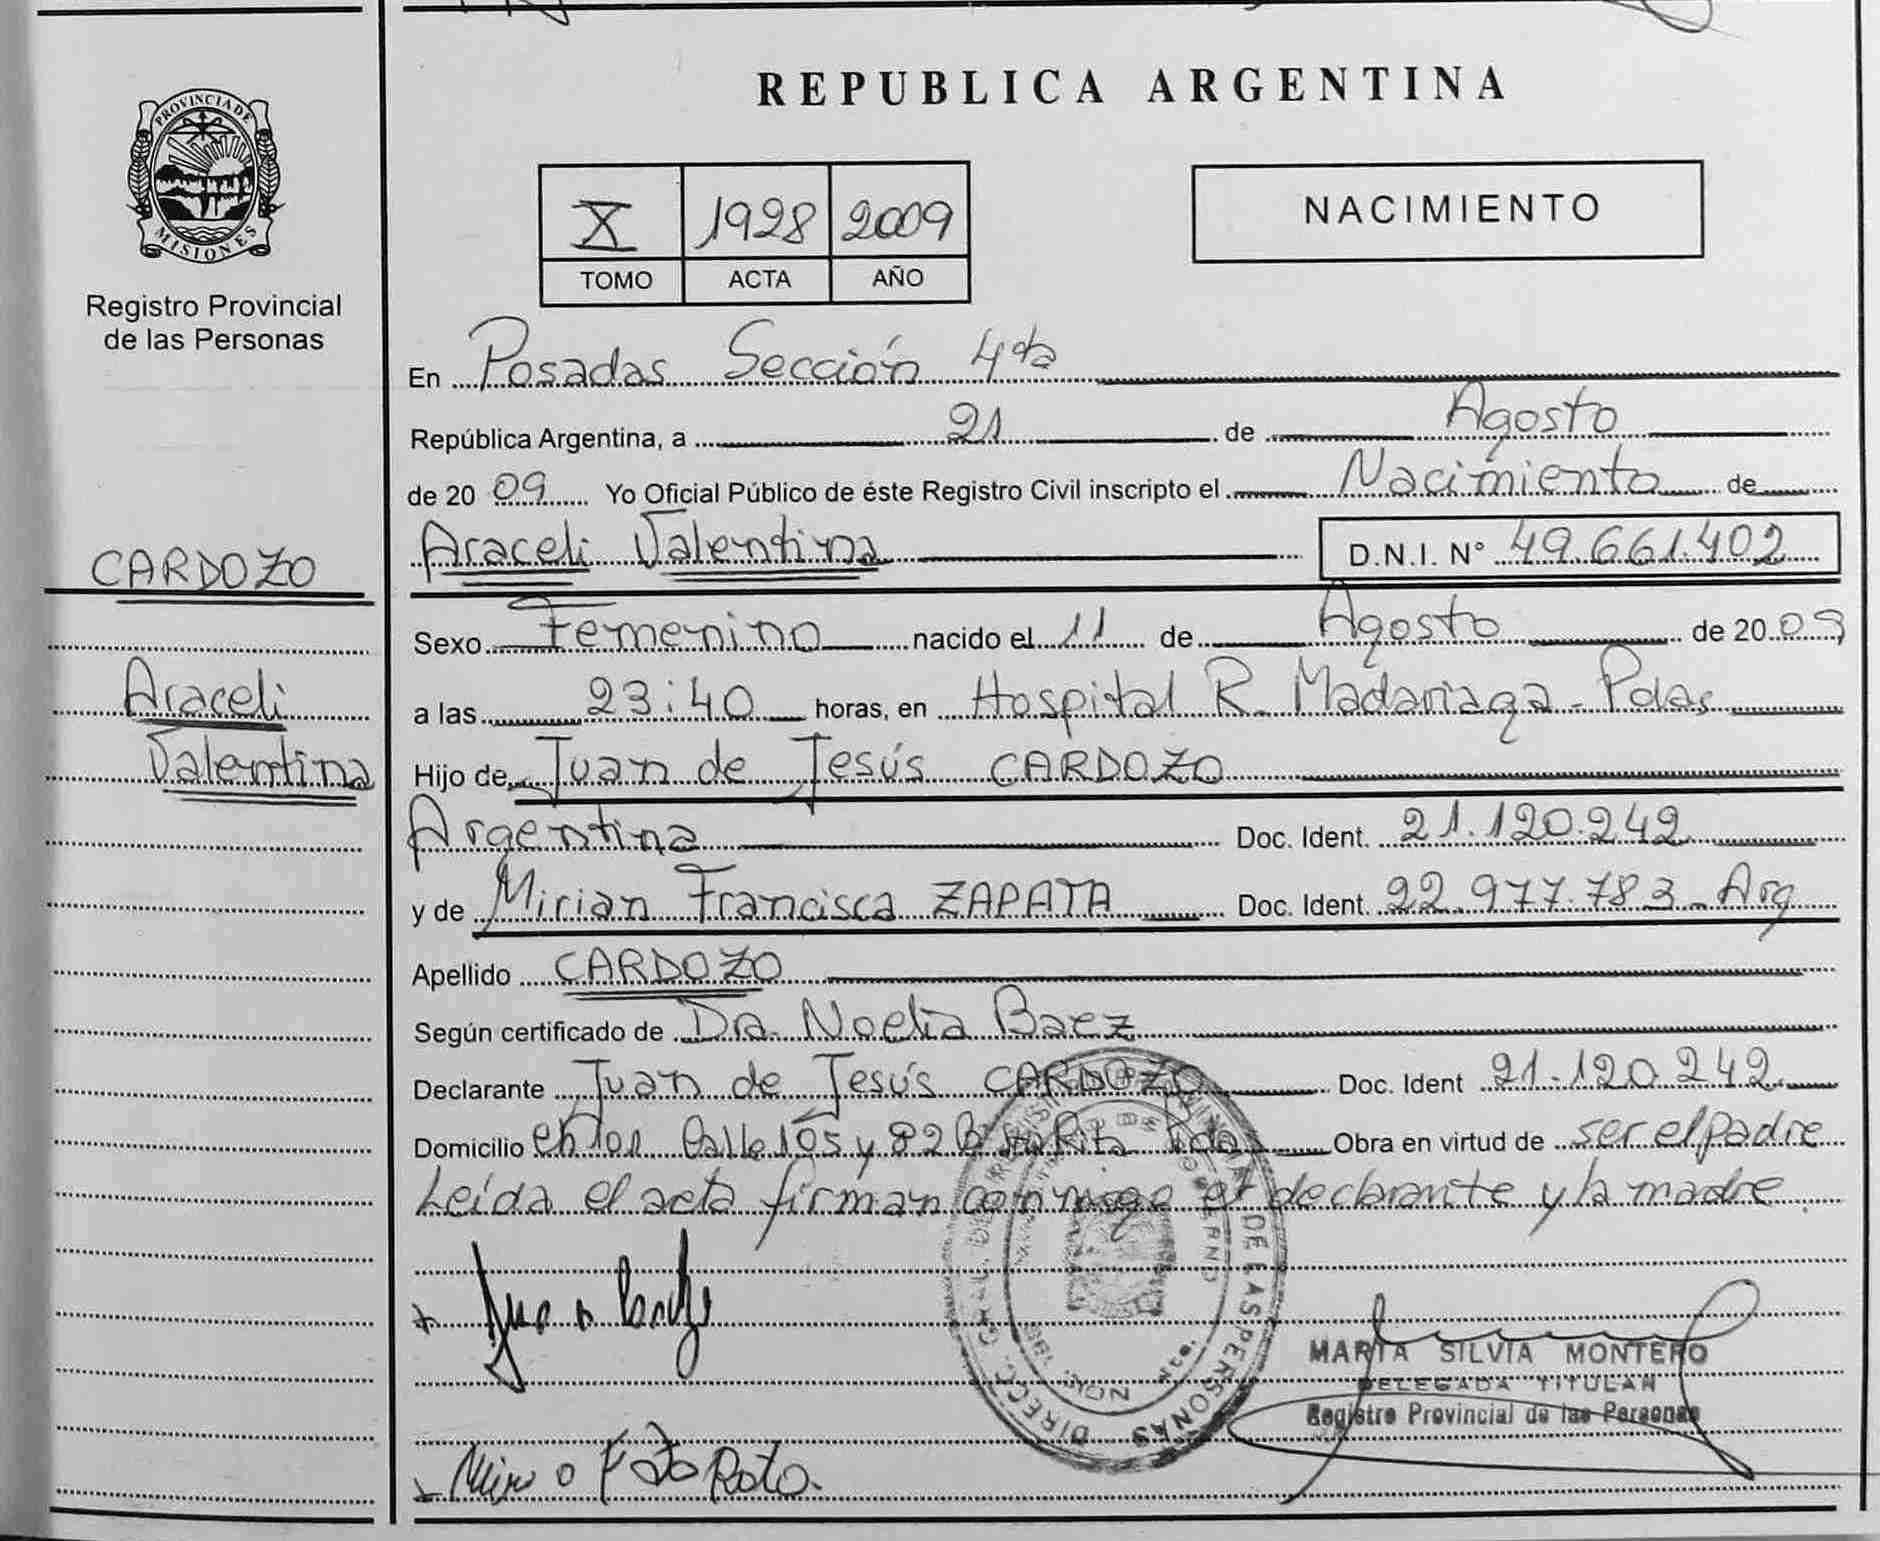 REPUBLICA ARGENTINA
PROVINCIA DE
MISIONES
Registro Provincial
de las Personas
X 1928 2009
TOMO ACTA AÑO
NACIMIENTO
En Posadas Sección 4ta
República Argentina, a 21 de Agosto
de 20 09 Yo Oficial Público de éste Registro Civil inscripto el Nacimiento de
CARDOZO
Araceli Valentina D.N.I. N° 49.661.402
Sexo Femenino nacido el 11 de Agosto de 20 09
Araceli
Valentina
a las 23:40 horas, en Hospital R. Madariaga - Pdas
Hijo de Juan de Jesús CARDOZO
Argentina Doc. Ident. 21.120.242
y de Mirian Francisca ZAPATA Doc. Ident. 22.977.783 - Arg
Apellido CARDOZO
Según certificado de Dra. Noelia Baez
Declarante Juan de Jesús CARDOZO Doc. Ident 21.120.242
Domicilio en Calle 105 y 82 Sta Rita Pdas Obra en virtud de ser el padre
Leída el acta firman conmigo el declarante y la madre
DE LAS PERSONAS
MARIA SILVIA MONTERO
DELEGADA TITULAR
Registro Provincial de las Personas